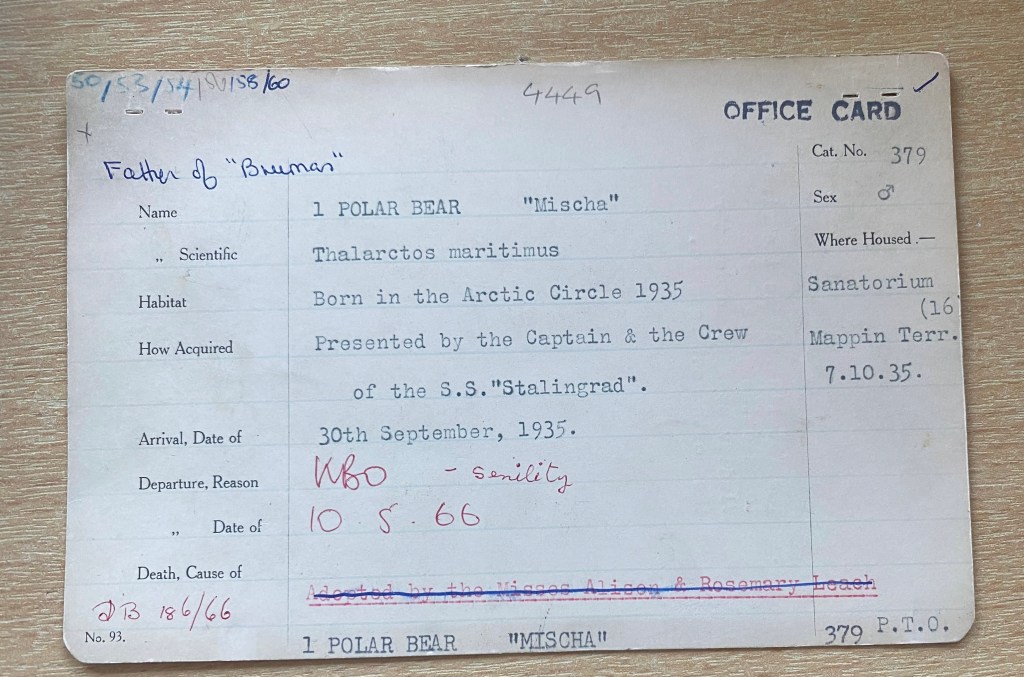 50/53/54/50/58/60
4449
OFFICE CARD
Father of "Brumas"
Cat. No. 379
Name 1 POLAR BEAR "Mischa"
Sex ♂
„ Scientific Thalarctos maritimus
Where Housed.—
Habitat Born in the Arctic Circle 1935
Sanatorium
(16
How Acquired Presented by the Captain & the Crew
Mappin Terr.
of the S.S."Stalingrad".
7.10.35.
Arrival, Date of 30th September, 1935.
Departure, Reason KBO - senility
„ Date of 10.5.66
Death, Cause of
Adopted by the Misses Alison & Rosemary Leach
DB 186/66
No. 93.
1 POLAR BEAR "MISCHA" 379 P.T.O.